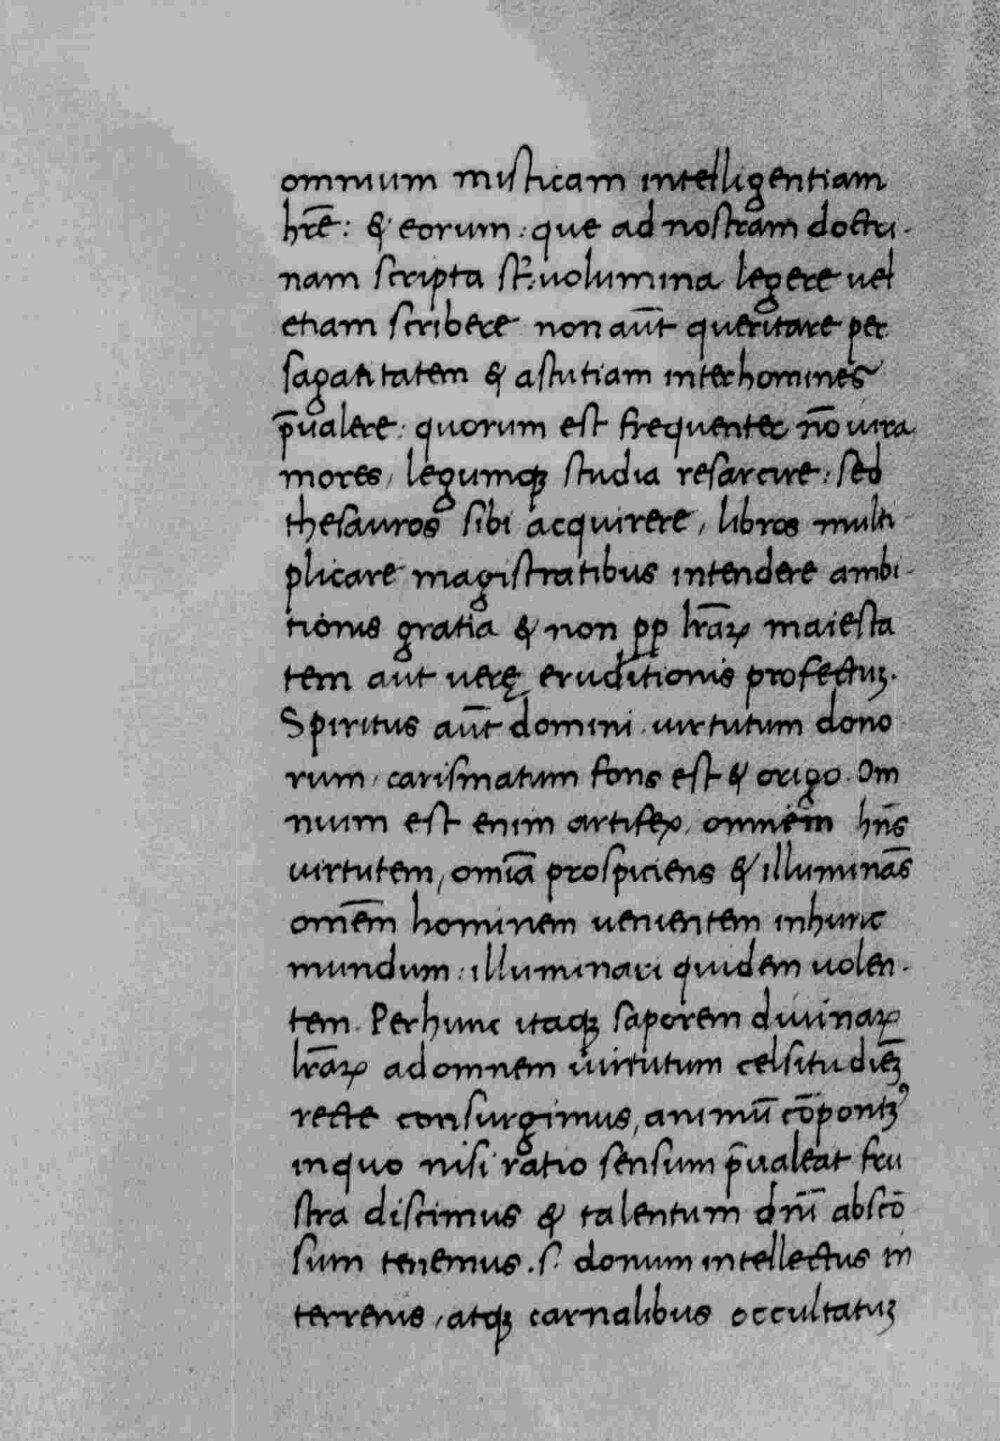 omnium misticam intelligentiam
hr̄e : & eorum : que ad nostram doctri-
nam scripta st̄ : uolumina legere uel
etiam scribere non aut̄ queritare per
sagatitatem & astutiam inter homines
p̄ualere : quorum est frequenter nō uita
mores, legumqꝫ studia resarcire : sed
thesauros sibi acquirere, libros multi-
plicare magistratibus intendere ambi-
tionis gratia & non pp lr̄aꝝ maiesta
tem aut uerę eruditionis profectuꝫ.
Spiritus aut̄ domini uirtutum dono
rum, carismatum fons est & origo. Om
nium est enim artifex, omnem hn̄s
uirtutem, omīa prospiciens & illuminās
omēm hominem uenientem in hunc
mundum : illuminari quidem uolen-
tem. Per hunc itaqꝫ saporem diuinaꝝ
lr̄aꝝ ad omnem uirtutum celsitudiēꝫ
recte consurgimus, animū cōpontꝫꝰ
in quo nisi ratio sensum p̄ualeat fru
stra discimus & talentum dn̄i abscō
sum tenemus . s. donum intellectus in
terrenis, atqꝫ carnalibus occultatuꝫ